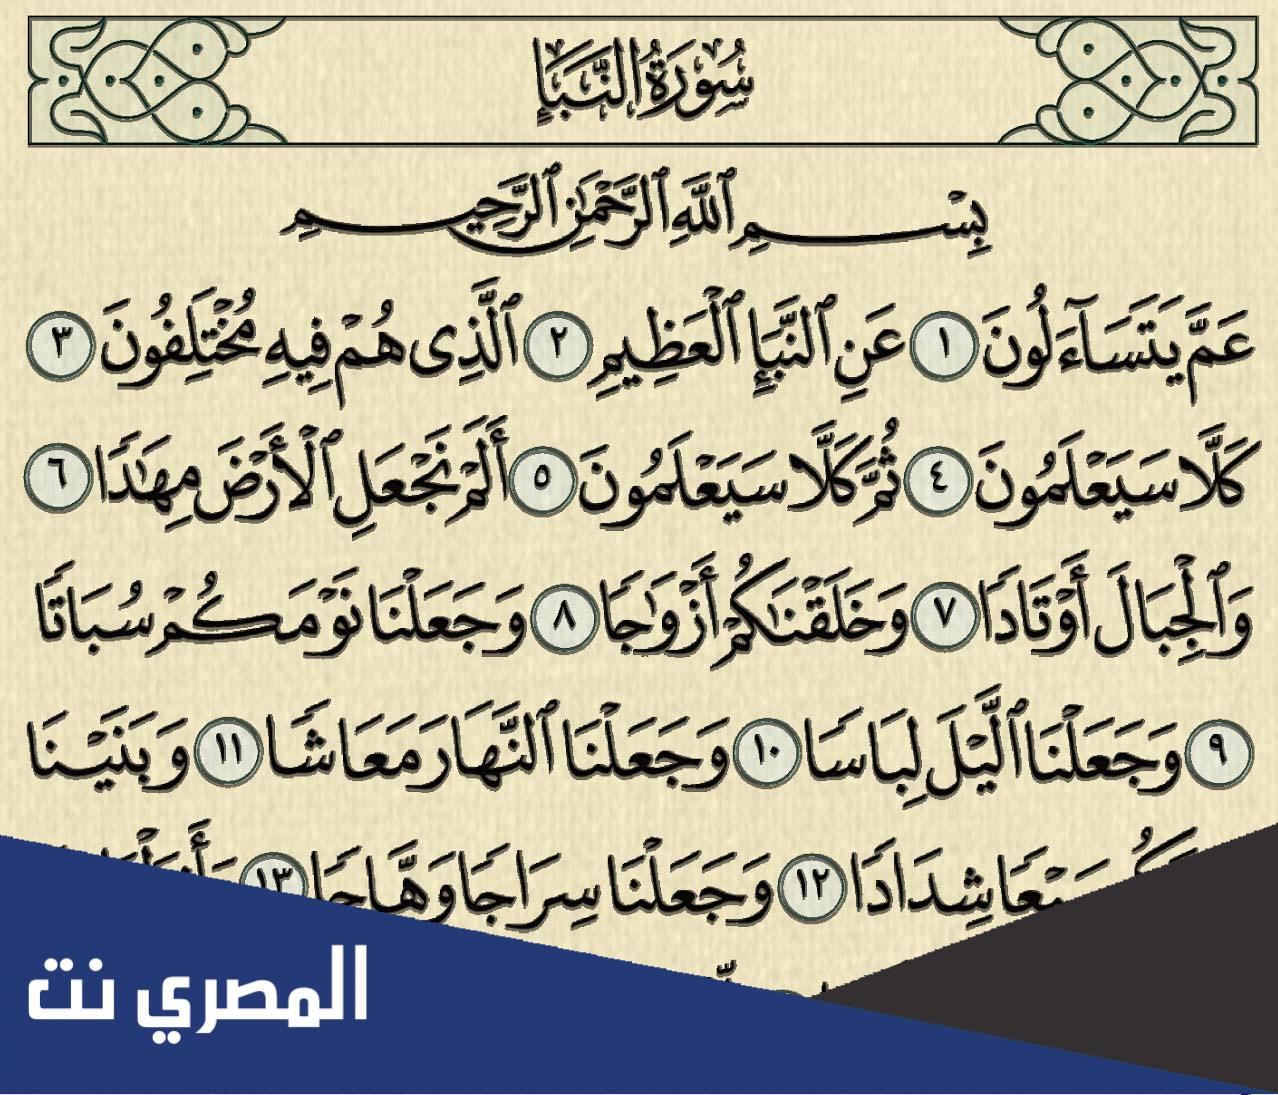 سُورَةُ النَّبَإِ
بِسْمِ ٱللَّهِ ٱلرَّحْمَٰنِ ٱلرَّحِيمِ
عَمَّ يَتَسَآءَلُونَ ١ عَنِ ٱلنَّبَإِ ٱلْعَظِيمِ ٢ ٱلَّذِى هُمْ فِيهِ مُخْتَلِفُونَ ٣
كَلَّا سَيَعْلَمُونَ ٤ ثُمَّ كَلَّا سَيَعْلَمُونَ ٥ أَلَمْ نَجْعَلِ ٱلْأَرْضَ مِهَٰدًا ٦
وَٱلْجِبَالَ أَوْتَادًا ٧ وَخَلَقْنَٰكُمْ أَزْوَٰجًا ٨ وَجَعَلْنَا نَوْمَكُمْ سُبَاتًا
٩ وَجَعَلْنَا ٱلَّيْلَ لِبَاسًا ١٠ وَجَعَلْنَا ٱلنَّهَارَ مَعَاشًا ١١ وَبَنَيْنَا
شِدَادًا ١٢ وَجَعَلْنَا سِرَاجًا وَهَّاجًا ١٣
المصري نت